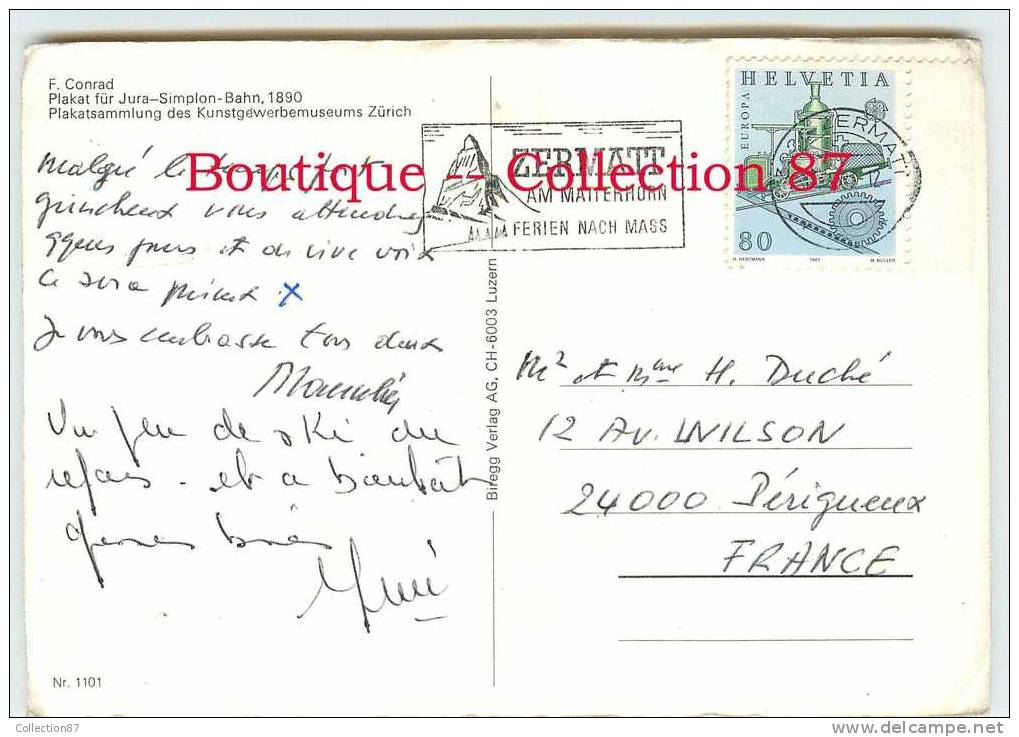 F. Conrad
Plakat für Jura–Simplon-Bahn, 1890
Plakatsammlung des Kunstgewerbemuseums Zürich
Malgré le temps
grincheux vous attendre
qques jours et de vive voix
ce sera mieux x
Je vous embrasse tous deux
Un peu de ski du
repos - et à bientôt
Grosses bises
Nr. 1101
Biregg Verlag AG, CH-6003 Luzern
ZERMATT
AM MATTERHORN
FERIEN NACH MASS
HELVETIA
EUROPA
80
H. HARTMANN
M. MÜLLER
ZERMATT
Mr et Mme H. Duché
12 Av. WILSON
24000 Périgueux
FRANCE
Boutique -- Collection 87
Collection87
www.delcampe.net